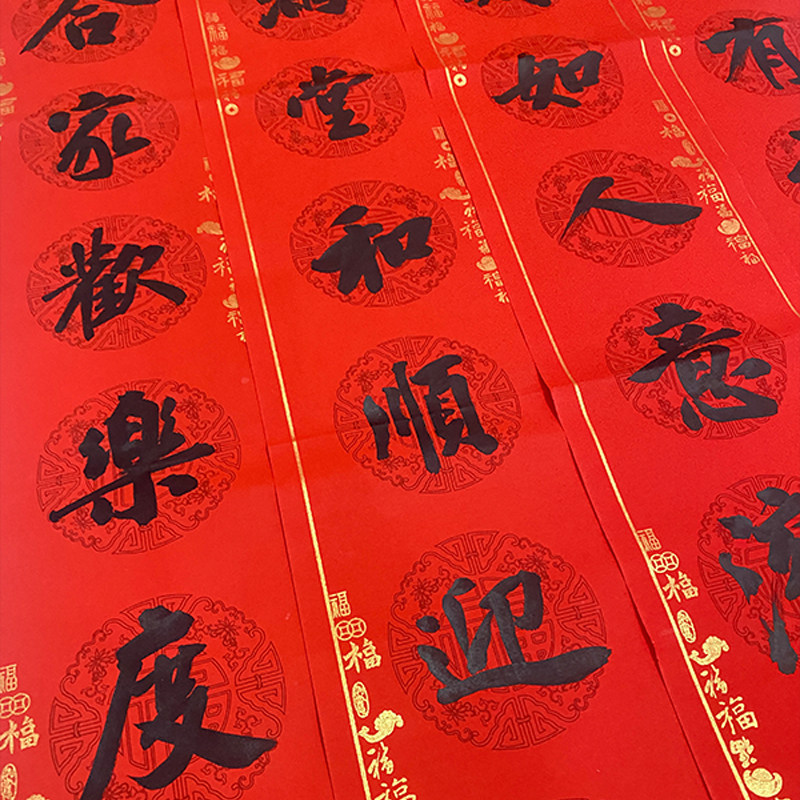 有
如人意
堂和順迎
合家歡樂度
福福福福
福福福福
福福